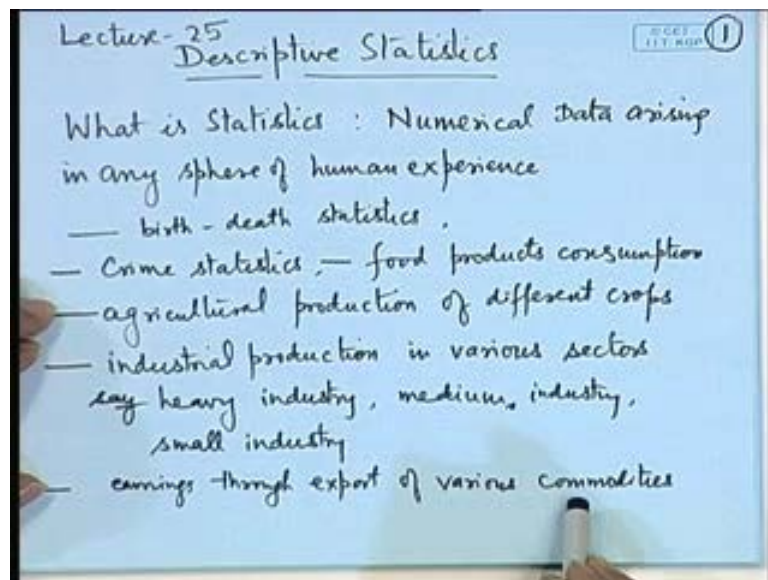 Lecture-25
Descriptive Statistics
© CET
I.I.T. KGP
1
What is Statistics : Numerical Data arising
in any sphere of human experience
— birth-death statistics.
— Crime statistics, — food products consumption
— agricultural production of different crops
— industrial production in various sectors
say heavy industry, medium industry,
small industry
— earnings through export of various commodities